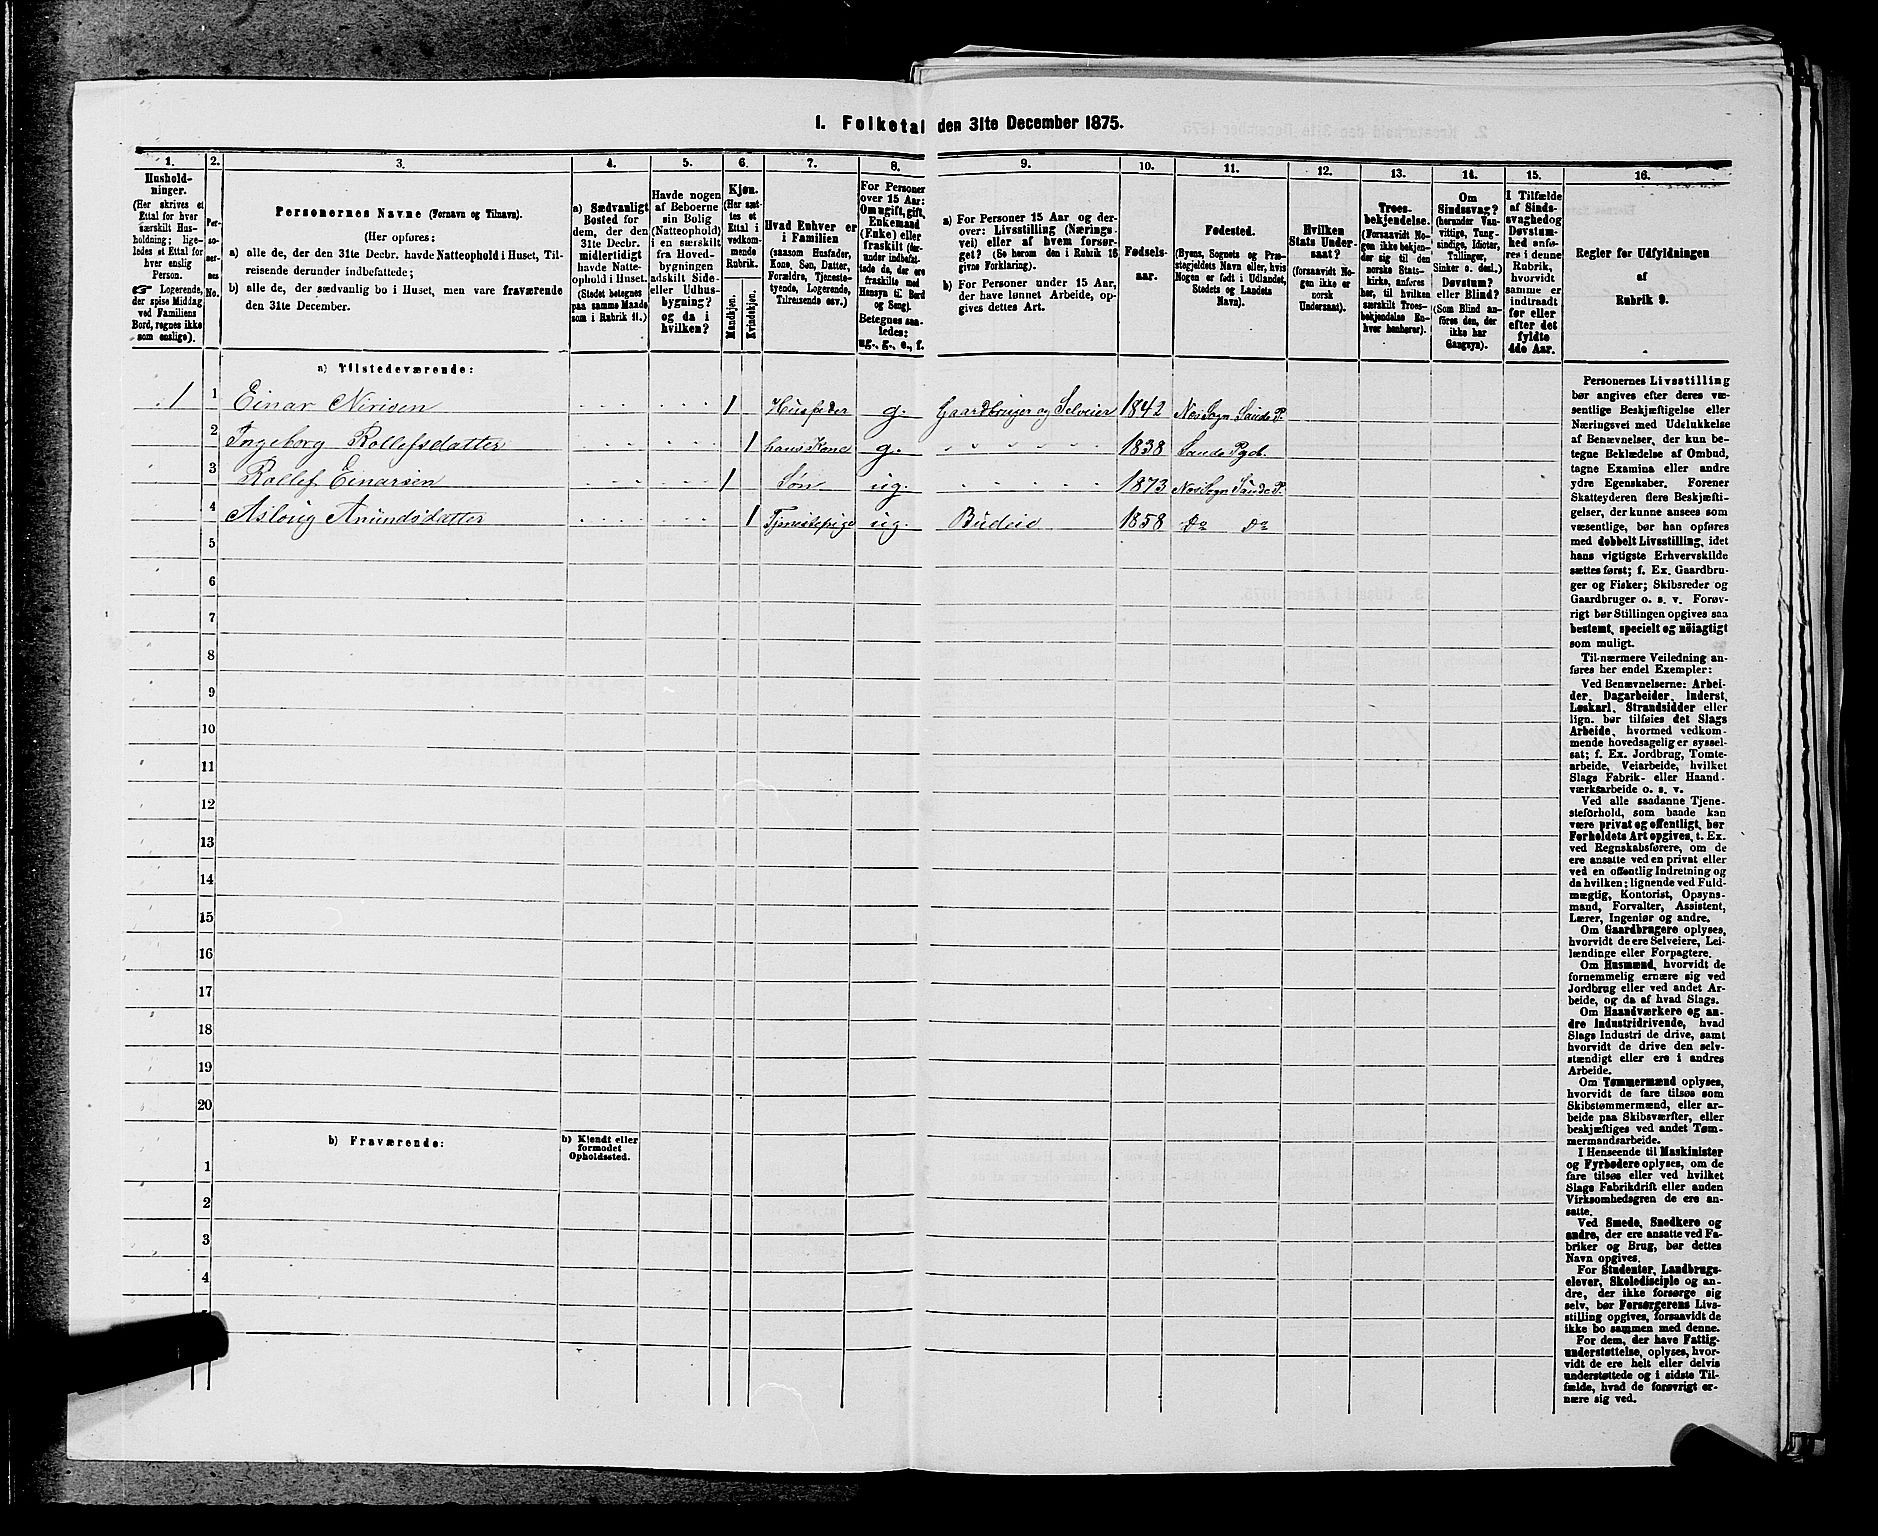 I. Folketal den 31te December 1875.
1. 2. 3. 4. 5. 6. 7. 8. 9. 10. 11. 12. 13. 14. 15. 16.
Hushold-
ninger.
(Her skrives et
Ettal for hver
særskilt Hus-
holdning; lige-
ledes et Ettal for
hver enslig
Person.
Logerende,
der spise Middag
ved Familiens
Bord, regnes ikke
som enslige).
Per-
so-
ner-
nes
No.
Personernes Navne (Fornavn og Tilnavn).
(Her opføres:
a) alle de, der den 31te Decbr. havde Natteophold i Huset, Til-
reisende derunder indbefattede;
b) alle de, der sædvanlig bo i Huset, men vare fraværende
den 31te December.
a) Sædvanligt
Bosted for
dem, der den
31te Decbr.
midlertidigt
havde Natte-
ophold i Huset.
(Stedet betegnes
paa samme Maade
som i Rubrik 11.)
Havde nogen
af Beboerne
sin Bolig
(Natteophold)
i en særskilt
fra Hoved-
bygningen
adskilt Side-
eller Udhus-
bygning?
og da i
hvilken?
Kjøn.
(Her sæt-
tes et
Ettal i
vedkom-
mende
Rubrik.
Mandkjøn.
Kvindekjøn.
Hvad Enhver er
i Familien
(saasom Husfader,
Kone, Søn, Datter,
Forældre, Tjeneste-
tyende, Logerende,
Tilreisende osv.)
For Personer
over 15 Aar:
Om ugift, gift,
Enkemand
(Enke) eller
fraskilt (der-
under indbefat-
tede de, der ere
fraskilte med
Hensyn til Bord
og Seng).
Betegnes saa-
ledes:
ug., g., e., f.
a) For Personer 15 Aar og der-
over: Livsstilling (Nærings-
vei) eller af hvem forsør-
get? (Se herom den i Rubrik 16
givne Forklaring).
b) For Personer under 15 Aar,
der have lønnet Arbeide, op-
gives dettes Art.
Fødsels-
aar.
Fødested.
(Byens, Sognets og Præ-
stegjeldets Navn eller, hvis
Nogen er født i Udlandet,
Stedets og Landets
Navn).
Hvilken
Stats Under-
saat?
(forsaavidt No-
gen ikke er
norsk
Undersaat).
Troes-
bekjendelse.
(Forsaavidt No-
gen ikke bekjen-
der sig til den
norske Stats-
kirke, anføres
her, til hvilken
særskilt Troes-
bekjendelse En-
hver henhører).
Om
Sindssvag?
(herunder Van-
vittige, Tung-
sindige, Idioter,
Tullinger,
Sinker o. desl.)
Døvstum?
eller Blind?
(Som Blind an-
føres den, der
ikke har
Gangsyn).
I Tilfælde
af Sinds-
svaghed og
Døvstum-
hed anfø-
res i denne
Rubrik,
hvorvidt
samme er
indtraadt
før eller
efter det
fyldte
4de Aar.
Regler for Udfyldningen
af
Rubrik 9.
a) Tilstedeværende:
1 1 Einar Nirisen 1 Husfader g. Gaardbruger og Selveier 1842 Nes Sogn Saude P.
2 Ingeborg Rollefsdatter 1 hans Kone g. 1838 Saude Pgd.
3 Rollef Einarsen 1 Søn ug. 1873 Nes Sogn Saude P.
4 Asloug Amundsdatter 1 Tjenestepige ug. Budeie 1858 Do Do
5
6
7
8
9
10
11
12
13
14
15
16
17
18
19
20
b) Fraværende:
b) Kjendt eller
formodet
Opholdssted.
1
2
3
4
Personernes Livsstilling
bør angives efter deres væ-
sentlige Beskjæftigelse eller
Næringsvei med Udelukkelse
af Benævnelser, der kun be-
tegne Beklædelse af Ombud,
tagne Examina eller andre
ydre Egenskaber. Forener
Skatteyderen flere Beskjæfti-
gelser, der kunne ansees som
væsentlige, bør han opføres
med dobbelt Livsstilling, idet
hans vigtigste Erhvervskilde
sættes først; f. Ex. Gaardbru-
ger og Fisker; Skibsreder og
Gaardbruger o. s. v. Forøv-
rigt bør Stillingen opgives saa
bestemt, specielt og nöiagtigt
som muligt.
Til nærmere Veiledning an-
føres her endel Exempler:
Ved Benævnelserne: Arbei-
der, Dagarbeider, Inderst,
Løskarl, Strandsidder eller
lign. bør tilføies det Slags
Arbeide, hvormed vedkom-
mende hovedsagelig er syssel-
sat; f. Ex. Jordbrug, Tomte-
arbeide, Veiarbeide, hvilket
Slags Fabrik- eller Haand-
værksarbeide o. s. v.
Ved alle saadanne Tjene-
steforhold, som baade kan
være privat og offentligt, bør
Forholdets Art opgives, t. Ex.
ved Regnskabsførere, om de
ere ansatte ved en privat eller
ved en offentlig Indretning og
da hvilken; lignende ved Fuld-
mægtig, Kontorist, Opsyns-
mand, Forvalter, Assistent,
Lærer, Ingeniør og andre.
Om Gaardbrugere oplyses,
hvorvidt de ere Selveiere, Lei-
lændinge eller Forpagtere.
Om Husmænd, hvorvidt de
fornemmelig ernære sig ved
Jordbrug eller ved andet Ar-
beide, og da af hvad Slags.
Om Haandværkere og an-
dre Industridrivende, hvad
Slags Industri de drive, samt
hvorvidt de drive den selv-
stændigt eller ere i andres
Arbeide.
Om Tømmermænd oplyses,
hvorvidt de fare tilsøs som
Skibstømmermænd, eller ar-
beide paa Skibsværfter, eller
beskjæftiges ved andet Tøm-
mermandsarbeide.
I Henseende til Maskinister
og Fyrbødere oplyses, om de
fare tilsøs eller ved hvilket
Slags Fabrikdrift eller anden
Virksomhedsgren de ere an-
satte.
Ved Smede, Snedkere og
andre, der ere ansatte ved Fa-
briker og Brug, bør dettes
Navn opgives.
For Studenter, Landbrugs-
elever, Skoledisciple og an-
dre, der ikke forsørge sig
selv, bør Forsørgerens Livs-
stilling opgives, forsaavidt de
ikke bo sammen med denne.
For dem, der have Fattig-
understøttelse, oplyses, hvor-
vidt de ere helt eller delvis
understøttede og i sidste Til-
fælde, hvad de forøvrigt er-
nære sig ved.